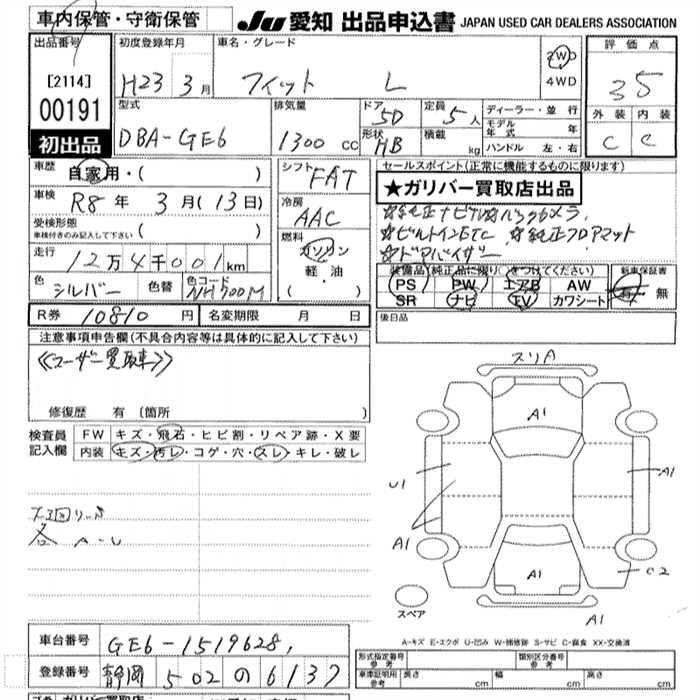 車内保管・守衛保管
JU 愛知 出品申込書 JAPAN USED CAR DEALERS ASSOCIATION
出品番号 初度登録年月 車名・グレード 評価点
[2114] H23 3月 フィット L 2WD 4WD 3.5
00191 型式 排気量 ドア 5D 定員 5人 ディーラー・並行 外装 内装
DBA-GE6 1300 CC 形状 HB 積載 kg モデル年式 年 C C
初出品 ハンドル 左・右
車歴 自家用・( ) シフト FAT セールスポイント(正常に機能するものに限ります)
車検 R8年 3月(13日) 冷房 AAC ★ガリバー買取店出品
受検形態 ( )
車検付きのみ記入して下さい
☆純正ナビ
☆ビルトインETC ☆純正フロアマット
☆ドアバイザー
走行 12万4千001km 燃料 ガソリン 軽油 ( )
装備品(純正品に限り○をつけてください) 新車保証書
色 シルバー 色替 色コード NH700M
PS PW エアB AW 有・無
SR ナビ TV カワシート
R券 10810円 名変期限 月 日 後日品
注意事項申告欄(不具合内容等は具体的に記入して下さい)
≪ユーザー買取車≫
修復歴 有 (箇所 )
検査員記入欄 FW キズ・飛石・ヒビ割・リペア跡・X要
内装 キズ・汚レ・コゲ・穴・スレ・キレ・破レ
スリA
A1
U1
A1
A1
各 A-U
C2
A1
A1
スペア
A-キズ E-エクボ U-凹み W-補修跡 S-サビ C-腐食 XX-交換済
車台番号 GE6-1519628
登録番号 静岡 502 の 6137
型式指定番号 参考 類別区分番号 参考
車庫証明用 参考 長さ cm 幅 cm 高さ cm
ガリバー買取店